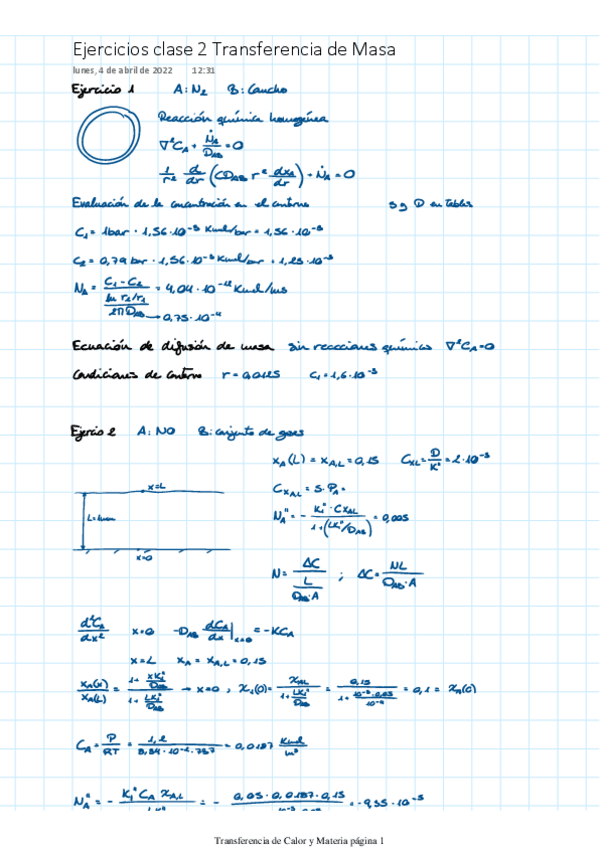 Ejercicios clase 2 Transferencia de Masa
lunes, 4 de abril de 2022 12:31
Ejercicio 1 A: N₂ B: Caucho
Reacción química homogénea
∇²C_A + Ṅ_A/D_AB = 0
1/r² d/dr (C D_AB r² dx_A/dr) + Ṅ_A = 0
Evaluación de la concentración en el contorno S y D en tablas
C₁ = 1bar · 1,56·10⁻³ Kmol/bar = 1,56·10⁻³
C₂ = 0,79 bar · 1,56·10⁻³ Kmol/bar = 1,25·10⁻³
N_A = (C₁ - C₂)/(ln r₂/r₁ / 2πD_AB) = 4,04·10⁻¹² Kmol/ms
→ 0,75·10⁻⁴
Ecuación de difusión de masa sin reacciones químicas ∇²C_A = 0
Condiciones de contorno r = 0,0125 C₁ = 1,6·10⁻³
Ejercio 2 A: NO B: conjunto de gases
x_A(L) = x_A,L = 0,15 C_XL = D/K" = 2·10⁻³
x=L
C_XAL = S·P_A
N_A" = - K₁"·C_XAL/(1+(LK₁"/D_AB)) = 0,005
x=0
N = ΔC/(L/(D_AB·A)) ; ΔC = NL/(D_AB·A)
d²C_A/dx² x=0 -D_AB dC_A/dx|x=0 = -KC_A
x=L x_A = x_A,L = 0,15
x_A(x)/x_A(L) = (1 + xK₁"/D_AB)/(1 + LK₁"/D_AB) → x=0 , x_A(0) = x_AL/(1 + LK₁"/D_AB) = 0,15/(1 + 10⁻³·0,05/10⁻⁴) = 0,1 = x_A(0)
C_A = P/RT = 1,2/(8,34·10⁻²·787) = 0,0187 Kmol/m³
N_A" = - K₁" C_A x_A,L = - 0,05·0,0187·0,15 = -9,35·10⁻⁵
Transferencia de Calor y Materia página 1